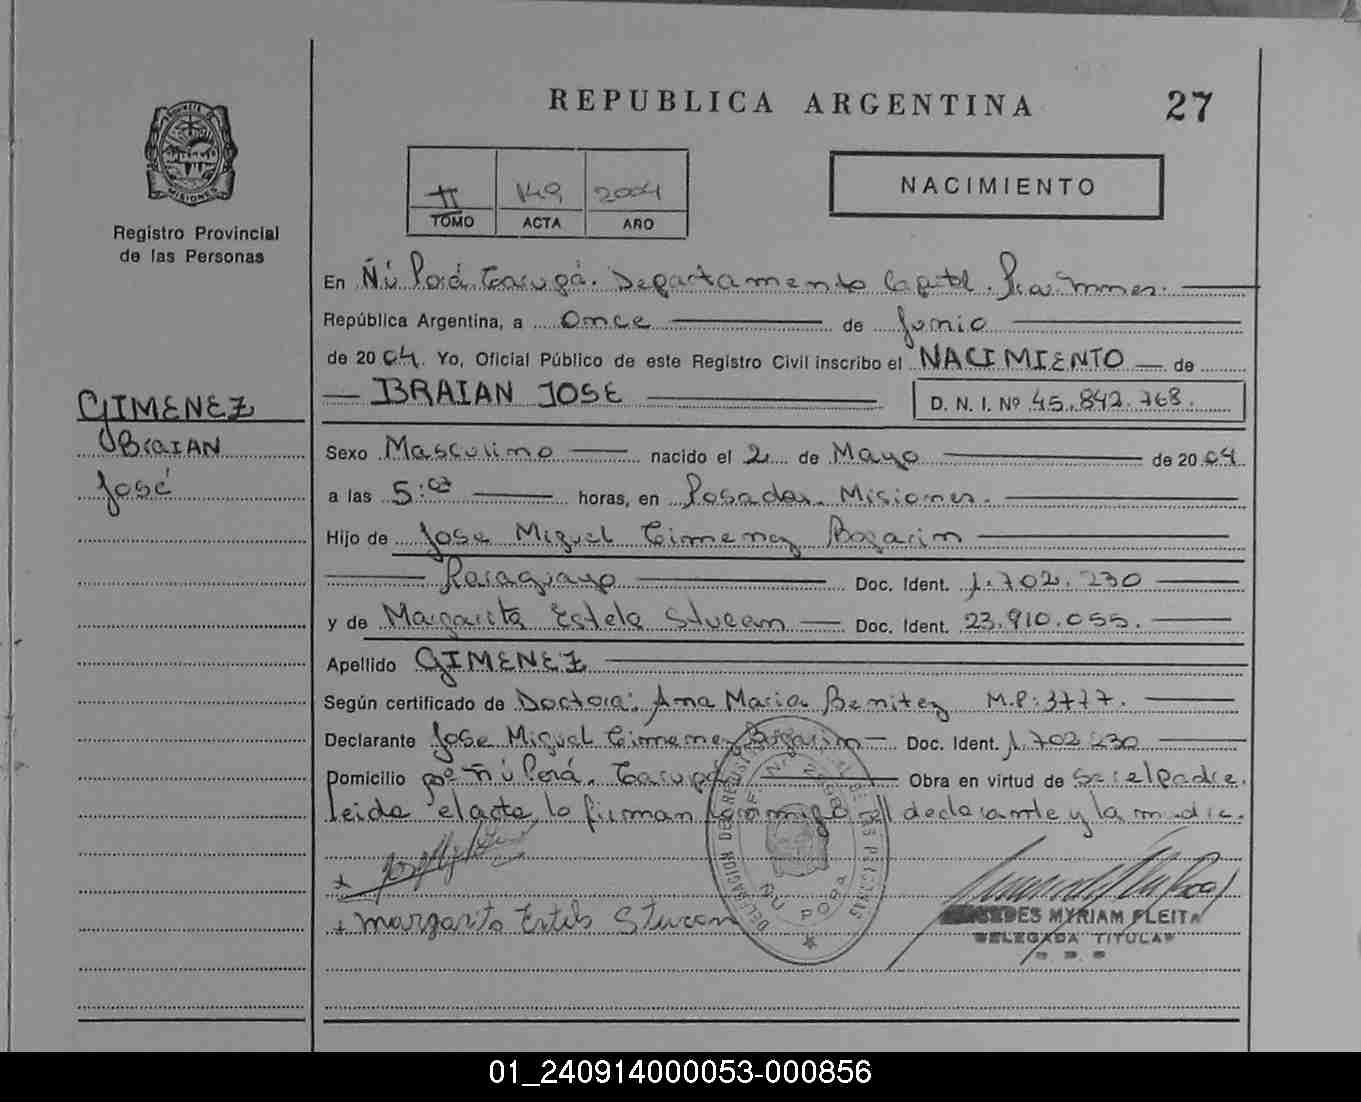 REPUBLICA ARGENTINA 27
PROVINCIA DE MISIONES
Registro Provincial
de las Personas
II 149 2004
TOMO ACTA AÑO
NACIMIENTO
En Ñú Porá. Garupá. Departamento Capital.
República Argentina, a once de Junio
de 2004. Yo, Oficial Público de este Registro Civil inscribo el NACIMIENTO de
BRAIAN JOSE D. N. I. Nº 45.842.768.
GIMENEZ
BraIAN
José
Sexo Masculino nacido el 2 de Mayo de 2004
a las 5:07 horas, en Posadas. Misiones.
Hijo de Jose Miguel Gimenez Bogarin
Paraguayo Doc. Ident. 1.702.230
y de Margarita Estela Stvean Doc. Ident. 23.910.055.
Apellido GIMENEZ
Según certificado de Doctora: Ana Maria Benitez M.P: 3777.
Declarante Jose Miguel Gimenez Bogarin Doc. Ident. 1.702.230
Domicilio Ñú Porá. Garupá Obra en virtud de Ser el padre.
leida el acta, lo firman conmigo el declarante y la
+
+ Margarita Estela
ÑU PORA
MYRIAM FLEITA
DELEGADA TITULAR
01_240914000053-000856